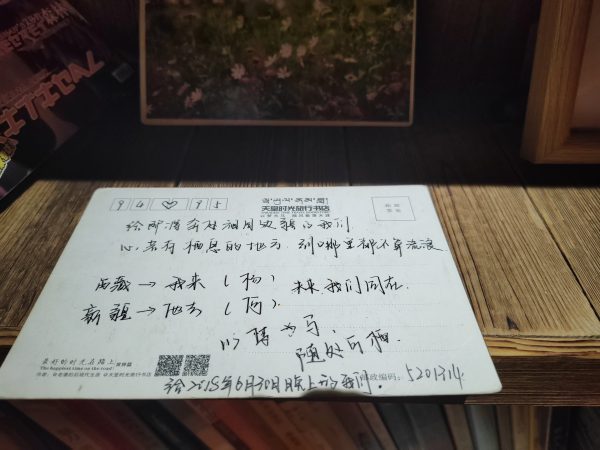 94 ♡ 95
天堂时光旅行书店
给即将奔赴祖国边疆的我们
心若有栖息的地方,到哪里都不算流浪
西藏→我来(杨)
未来我们同在.
新疆→他去(阿).
以梦为马,
随处可栖.
最好的时光在路上
The happiest time on the road
给2018年6月30日晚上的我们.
邮政编码: 5201314